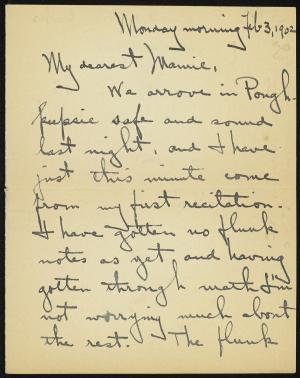 Monday morning Feb 3, 1902
My dearest Mamie,
We arrove in Pough-
keepsie safe and sound
last night, and I have
just this minute come
from my first recitation.
I have gotten no flunk
notes as yet and having
gotten through math I'm
not worrying much about
the rest. The flunk